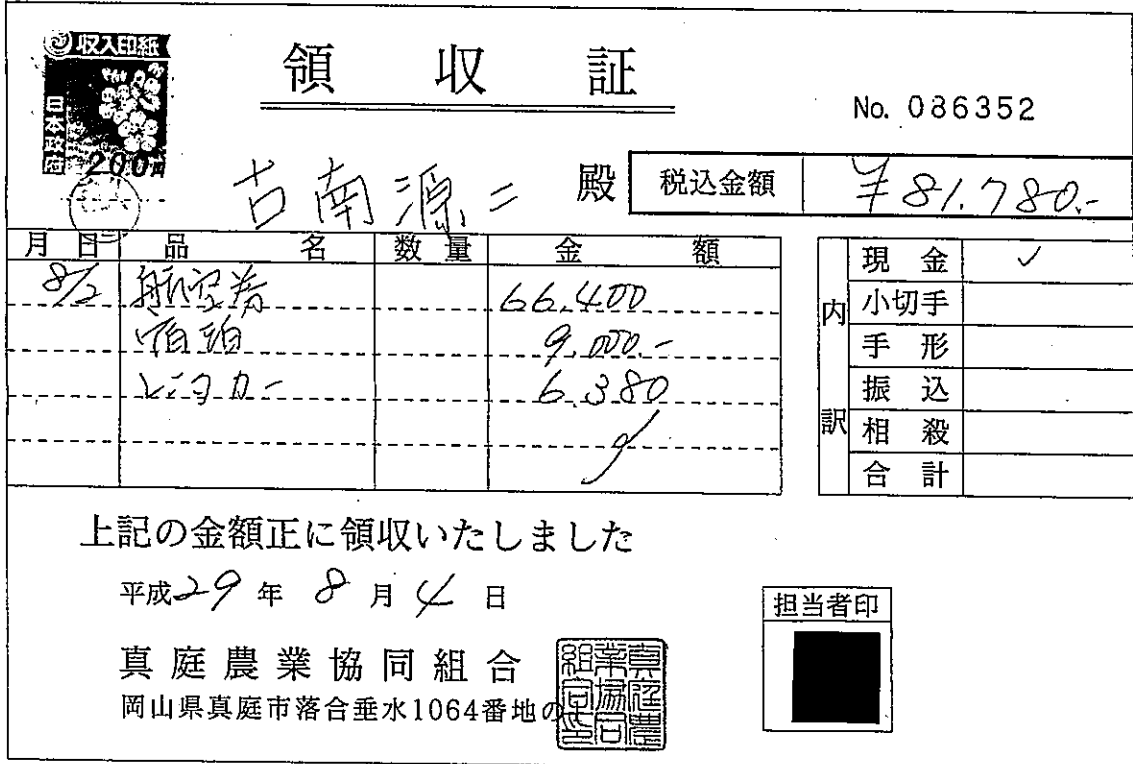 収入印紙
日本政府
200円
領収証
No. 086352
古南源二 殿
税込金額 ¥81.780.-
月日 品名 数量 金額
8/2 航空券 66.400
宿泊 9.000.-
レンタカー 6.380
内訳
現金 ✓
小切手
手形
振込
相殺
合計
上記の金額正に領収いたしました
平成29年8月4日
担当者印
真庭農業協同組合
岡山県真庭市落合垂水1064番地の
真庭農業協同組合